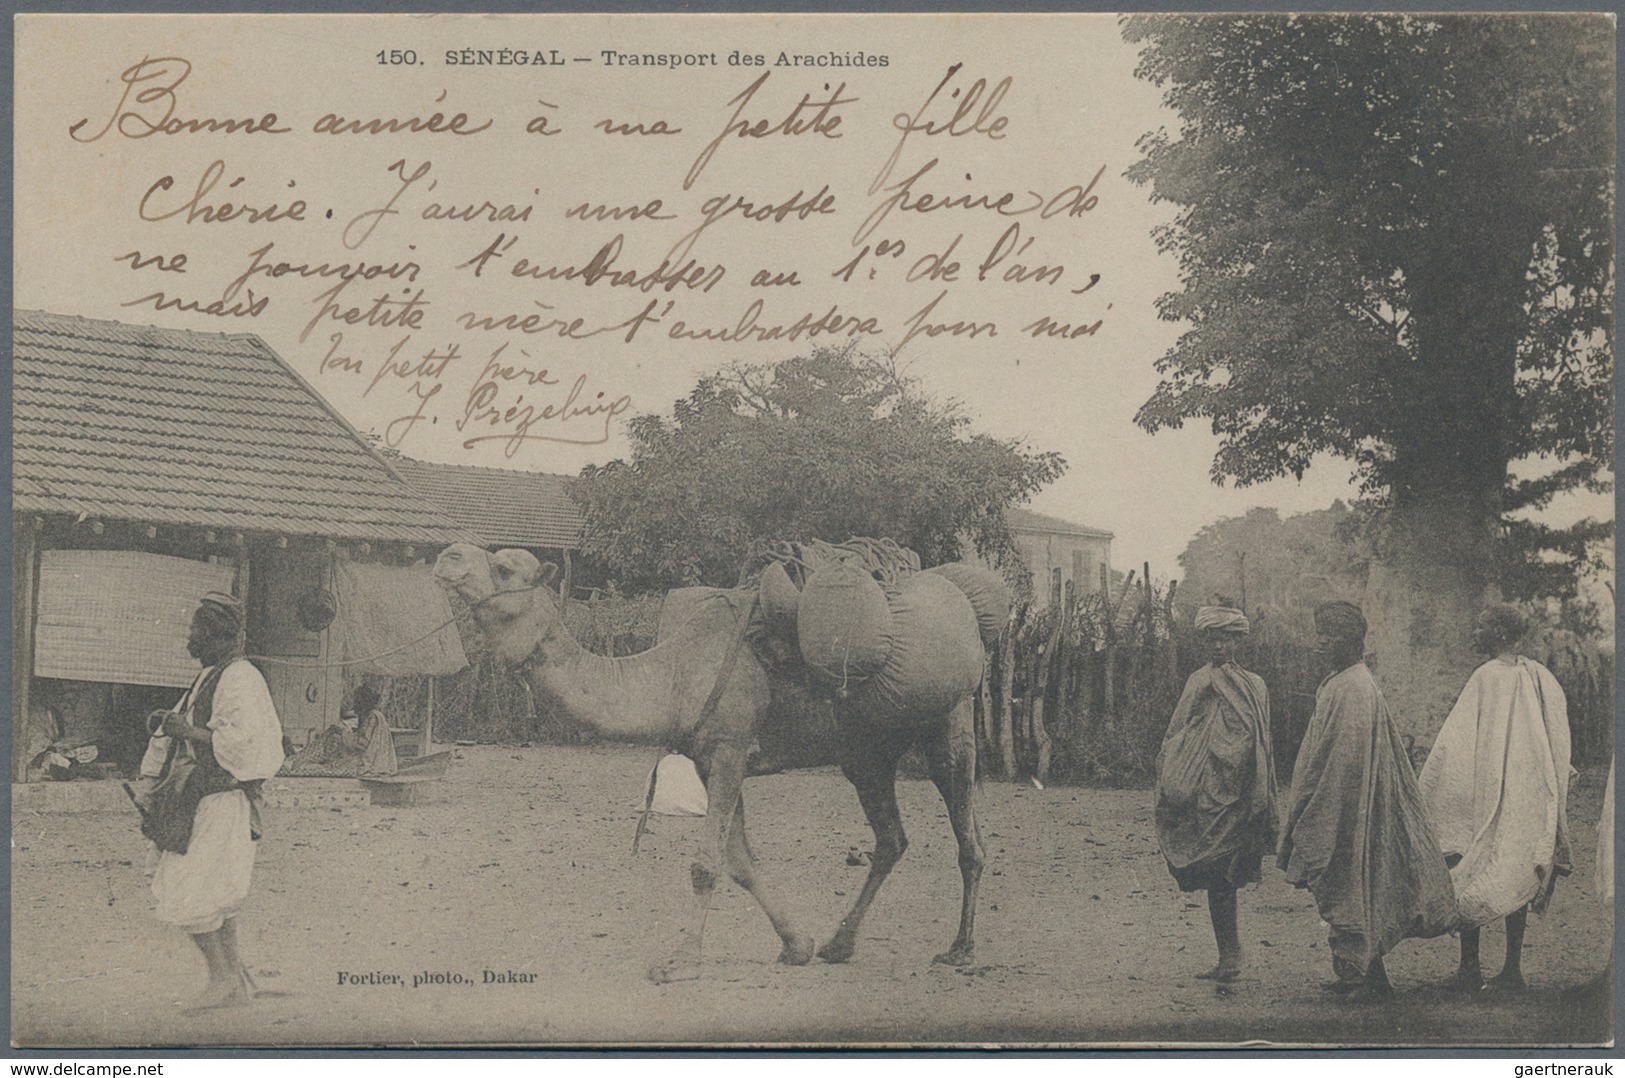 150. SÉNÉGAL — Transport des Arachides
Bonne année à ma petite fille
Chérie. J'aurai une grosse peine de
ne pouvoir t'embrasser au 1er de l'an,
mais petite mère t'embrassera pour moi
Ton petit père
J.
Fortier, photo., Dakar
www.delcampe.net
gaertnerauk